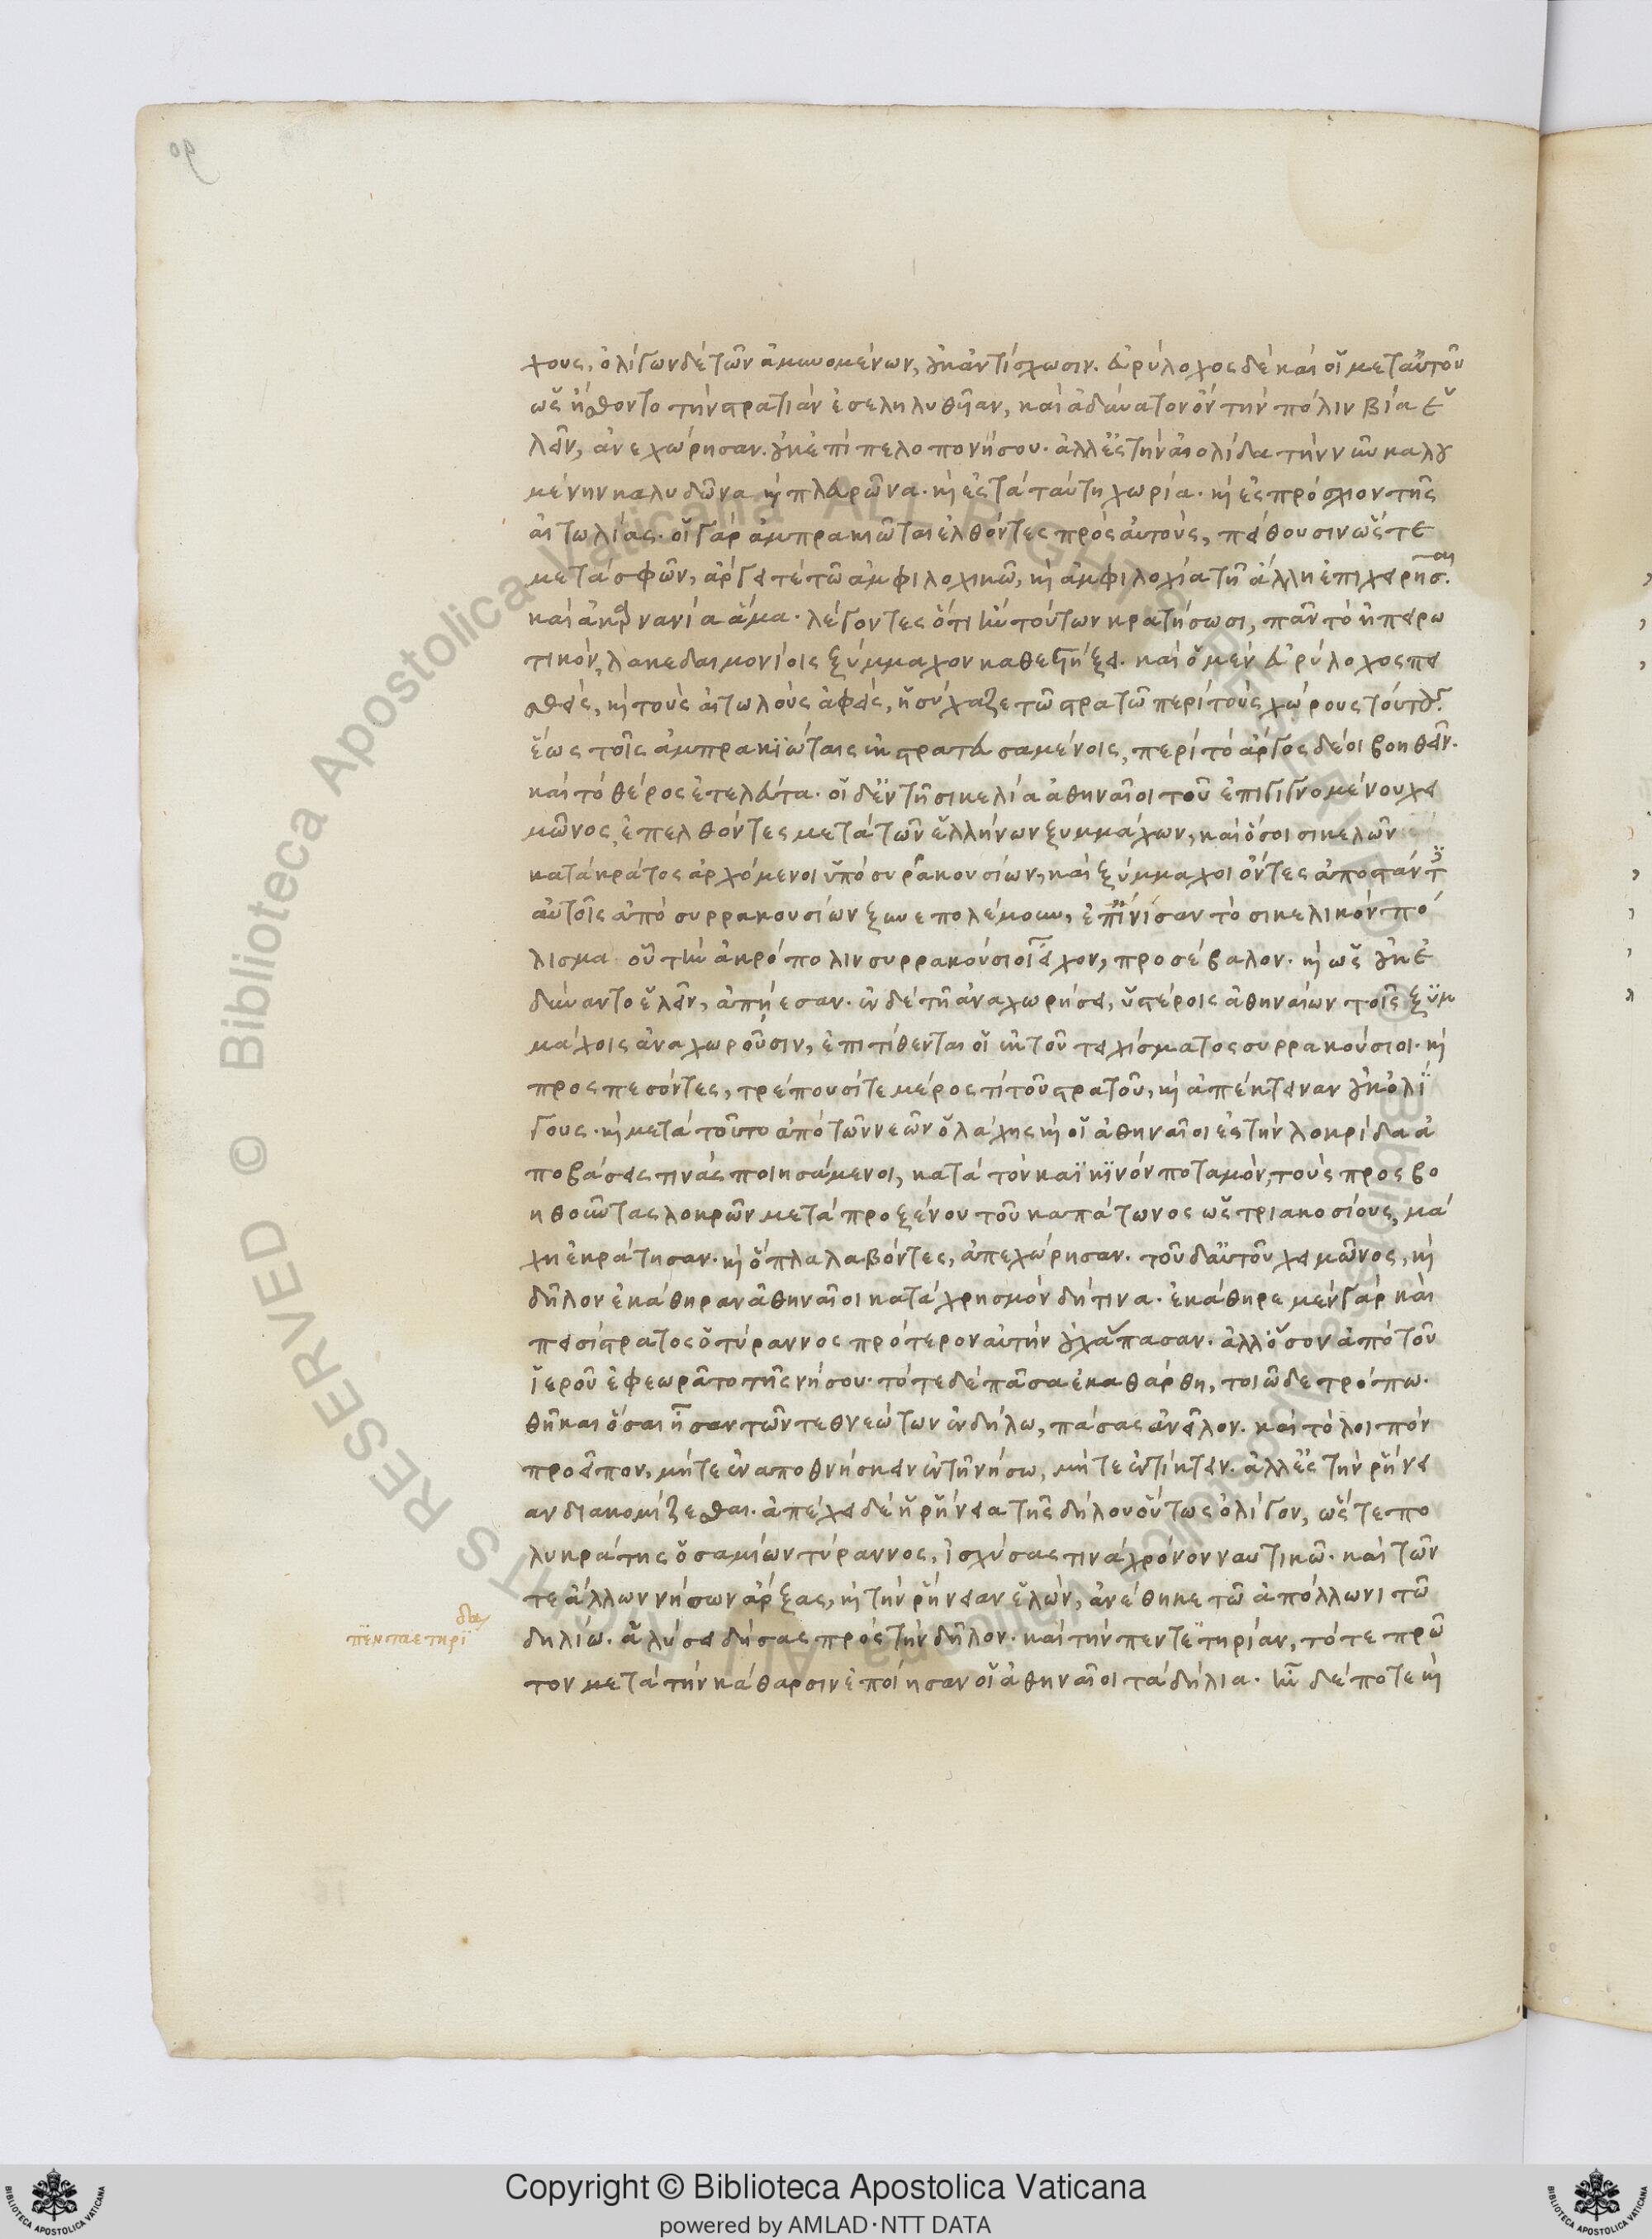 χους, ὀλίγων δὲ τῶν ἀμυνομένων, οὐκ ἀντίσχωσιν. εὐρύλοχος δὲ καὶ οἱ μετ' αὐτοῦ
ὡς ᾔσθοντο τὴν στρατιὰν ἐσεληλυθῆαν, καὶ ἀδύνατον ὂν τὴν πόλιν βία ἑ
λεῖν, ἀνεχώρησαν. οὐκ ἐπὶ πελοπονήσου. ἀλλ' ἐς τὴν αἰολίδα τὴν νῦν καλου
μένην καλυδῶνα καὶ πλευρῶνα. καὶ ἐς τὰ ταύτη χωρία. καὶ ἐς πρόσχιον τῆς
αἰτωλίας. οἱ γὰρ ἀμπρακιῶται ἐλθόντες πρὸς αὐτοὺς, πείθουσιν ὥστε
μετὰ σφῶν, ἄργει τὲ τῶ ἀμφιλοχικῶ, καὶ ἀμφιλοχία τῆ ἄλλη ἐπιχειρῆσαι.
καὶ ἀκαρνανία ἅμα. λέγοντες ὅτι ἢν τούτων κρατήσωσι, πᾶν τὸ ἠπειρω
τικὸν, λακεδαιμονίοις ξύμμαχον καθεστήξει. καὶ ὁ μὲν εὐρύλοχος πει
σθεὶς, καὶ τοὺς αἰτωλοὺς ἀφεὶς, ἡσύχαζε τῶ στρατῶ περὶ τοὺς χώρους τούτους.
ἕως τοῖς ἀμπρακϊώταις ἐκστρατευσαμένοις, περὶ τὸ ἄργος δέοι βοηθεῖν.
καὶ τὸ θέρος ἐτελεύτα. οἱ δ' ἐν τῆ σικελία ἀθηναῖοι τοῦ ἐπιγιγνομένου χει
μῶνος, ἐπελθόντες μετὰ τῶν ἑλλήνων ξυμμάχων, καὶ ὅσοι σικελῶν
κατὰ κράτος ἀρχόμενοι ὑπὸ συρακουσίων, καὶ ξύμμαχοι ὄντες ἀποστάντες
αὐτοῖς ἀπὸ συρρακουσίων ξυνεπολέμουν, ἐπ' ἴνισαν τὸ σικελικὸν πό
λισμα οὗ τὴν ἀκρόπολιν συρρακούσιοι εἶχον, προσέβαλον. καὶ ὡς οὐκ ἐ
δύναντο ἑλεῖν, ἀπῄεσαν. ἐν δὲ τῆ ἀναχωρήσει, ὑστέροις ἀθηναίων τοῖς ξυμ
μάχοις ἀναχωροῦσιν, ἐπιτίθενται οἱ ἐκ τοῦ τειχίσματος συρρακούσιοι. καὶ
προςπεσόντες, τρέπουσί τε μέρος τὶ τοῦ στρατοῦ, καὶ ἀπέκτειναν οὐκ ὀλί
γους. καὶ μετὰ τοῦτο ἀπὸ τῶν νεῶν ὁ λάχης καὶ οἱ ἀθηναῖοι ἐς τὴν λοκρίδα ἀ
ποβάσεις τινὰς ποιησάμενοι, κατὰ τὸν καϊκϊνὸν ποταμὸν, τοὺς προςβο
ηθοῦντας λοκρῶν μετὰ προξένου τοῦ καπάτωνος ὡς τριακοσίους, μά
χη ἐκράτησαν. καὶ ὅπλα λαβόντες, ἀπεχώρησαν. τοῦ δ' αὐτοῦ χειμῶνος, καὶ
δῆλον ἐκάθηραν ἀθηναῖοι κατὰ χρησμὸν δή τινα. ἐκάθηρε μὲν γὰρ καὶ
πεισίστρατος ὁ τύραννος πρότερον αὐτὴν οὐχ ἅπασαν. ἀλλ' ὅσον ἀπὸ τοῦ
ἱεροῦ ἐφεωρᾶτο τῆς νήσου. τότε δὲ πᾶσα ἐκαθάρθη, τοιῶδε τρόπω.
θῆκαι ὅσαι ἦσαν τῶν τεθνεώτων ἐν δήλω, πάσας ἀνεῖλον. καὶ τὸ λοιπὸν
προεῖπον, μήτε ἐναποθνήσκειν ἐν τῆ νήσω, μήτε ἐντίκτειν. ἀλλ' ἐς τὴν ῥήνει
αν διακομίζεσθαι. ἀπέχει δὲ ἡ ῥήνεια τῆς δήλου οὕτως ὀλίγον, ὥςτε πο
λυκράτης ὁ σαμίων τύραννος, ἰσχύσας τινὰ χρόνον ναυτικῶ. καὶ τῶν
τε ἄλλων νήσων ἄρξας, καὶ τὴν ῥήνειαν ἑλὼν, ἀνέθηκε τῶ ἀπόλλωνι τῶ
δηλίω. ἁλύσει δήσας πρὸς τὴν δῆλον. καὶ τὴν πεντετηρίαν, τότε πρῶ
πενταετηρίδα
τον μετὰ τὴν κάθαρσιν ἐποίησαν οἱ ἀθηναῖοι τὰ δήλια. ἦν δέ ποτε καὶ
Copyright © Biblioteca Apostolica Vaticana
powered by AMLAD·NTT DATA